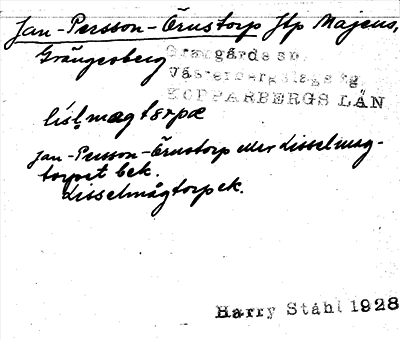 Jan-Persson-Örnstorp Htp Majens,
Grängesberg
Grangärde sn.
Västerbergslags tg.
KOPPARBERGS LÄN
lislmagtərpæ
Jan-Persson-Örnstorp eller Lisselmag-
torpet bek.
Lisselmågtorpek.
Harry Ståhl 1928